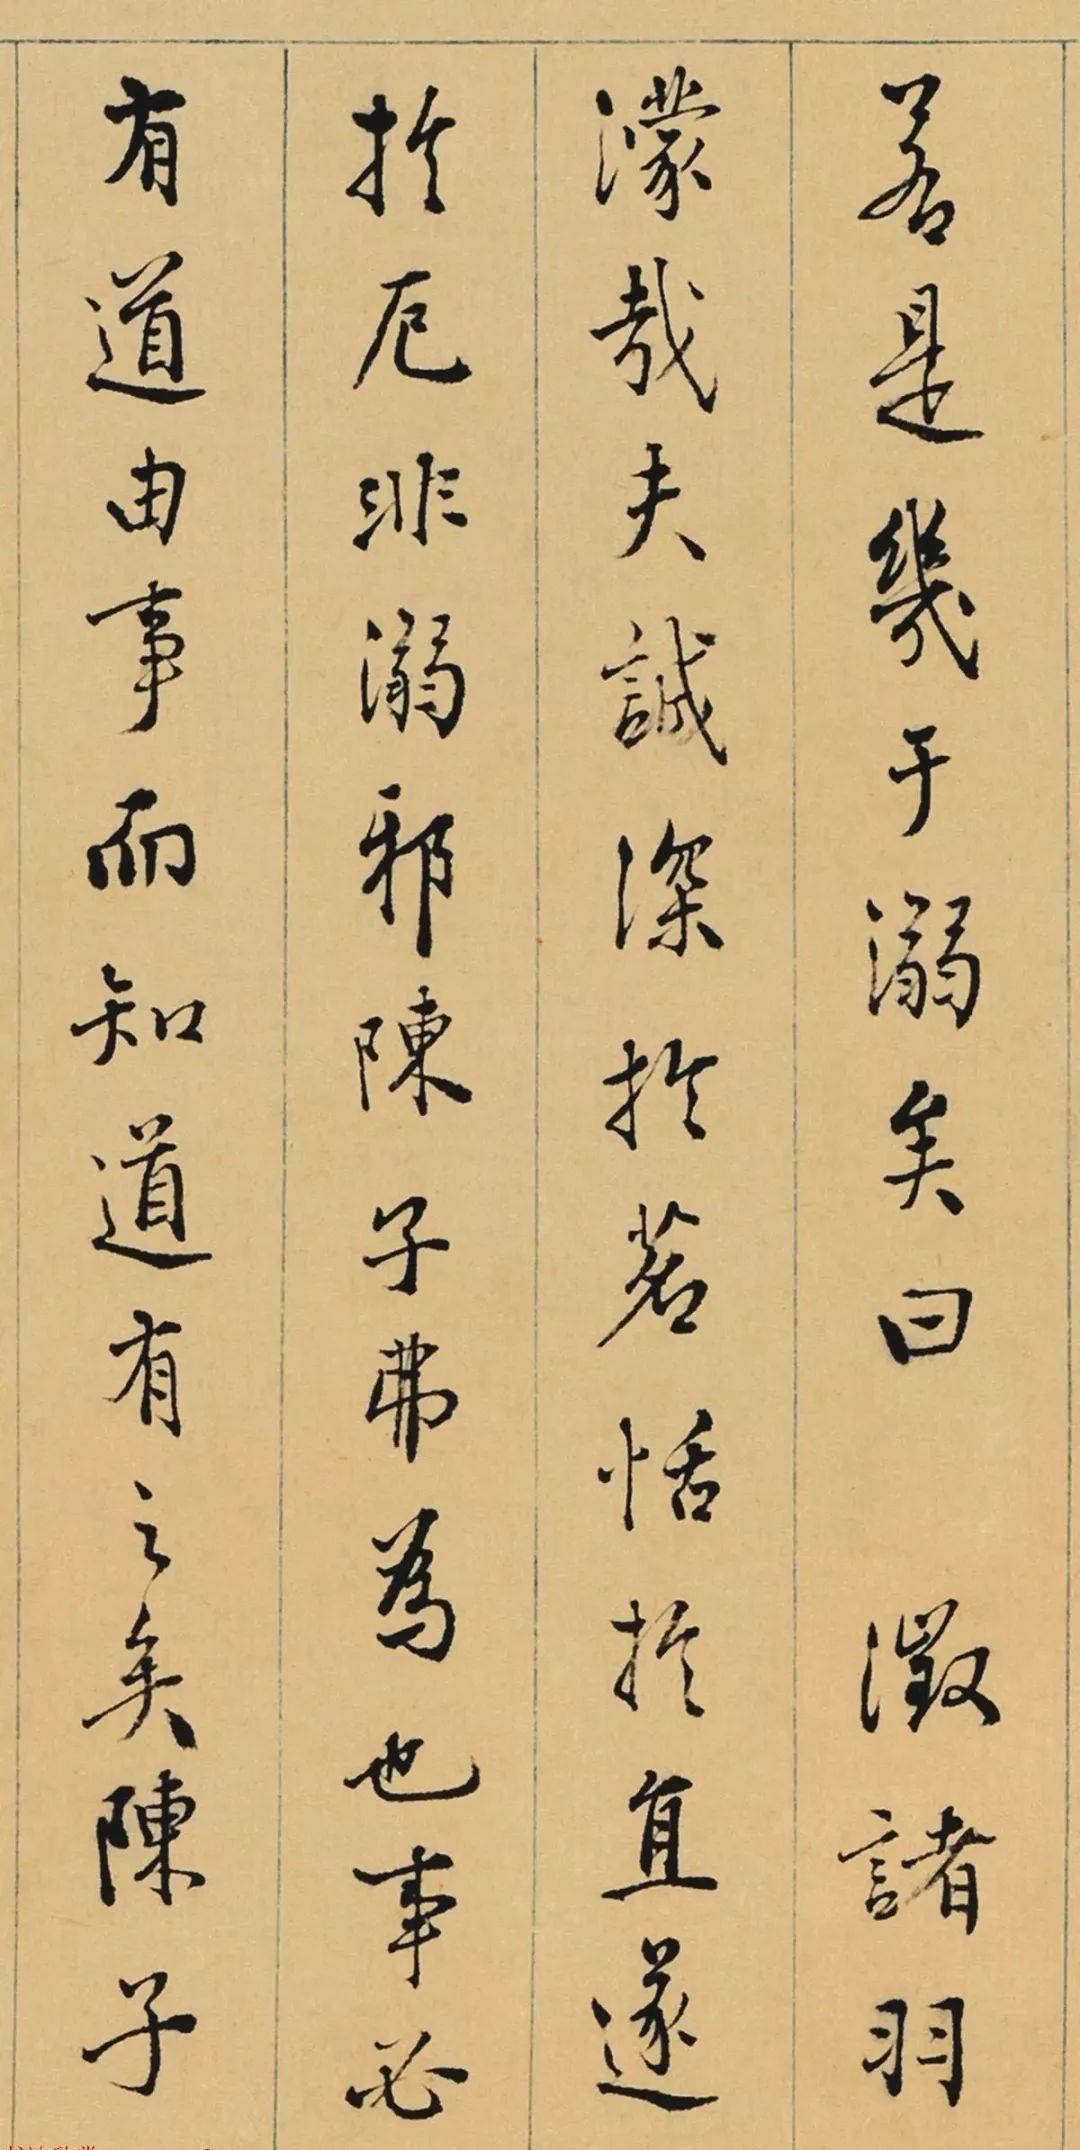 若是幾于溺矣曰　徵諸羽
濛哉夫誠深於茗恬於直遂
於厄非溺邪陳子弗為也事必
有道由事而知道有之矣陳子